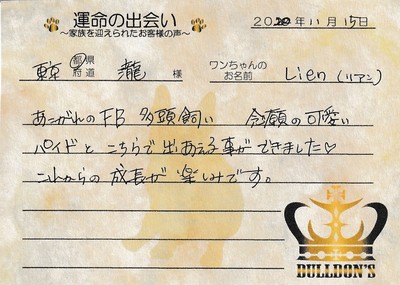 運命の出会い
～家族を迎えられたお客様の声～
2020年11月15日
東京 都道府県 瀧 様
ワンちゃんのお名前 Lien (リアン)
あこがれの FB 多頭飼い 念願の可愛い
パイドと こちらで 出あえる事ができました♡
これからの 成長が 楽しみです。
BULLDON'S